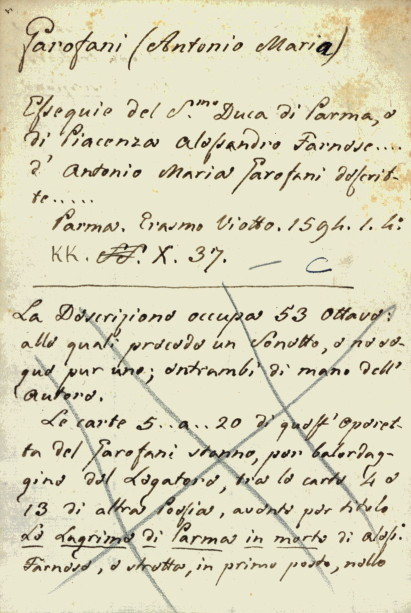 Garofani (Antonio Maria)
Essequie del S.mo Duca di Parma, e
di Piacenza Alessandro Farnese....
d' Antonio Maria Garofani descrit-
te.....
Parma. Erasmo Viotto. 1594. I. 4:
KK. X. 37. — C
La Descrizione occupa 53 Ottave:
alle quali precede un Sonetto, e ne se-
gue pur uno; entrambi di mano dell'
Autore.
Le carte 5..a..20 di quest' Operet-
ta del Garofani stanno, per balordag-
gine del Legatore, tra le carte 4 e
13 di altra Poesia, avente per titolo
Le Lagrime di Parma in morte di Aless.
Farnese, e stretta, in primo posto, nello